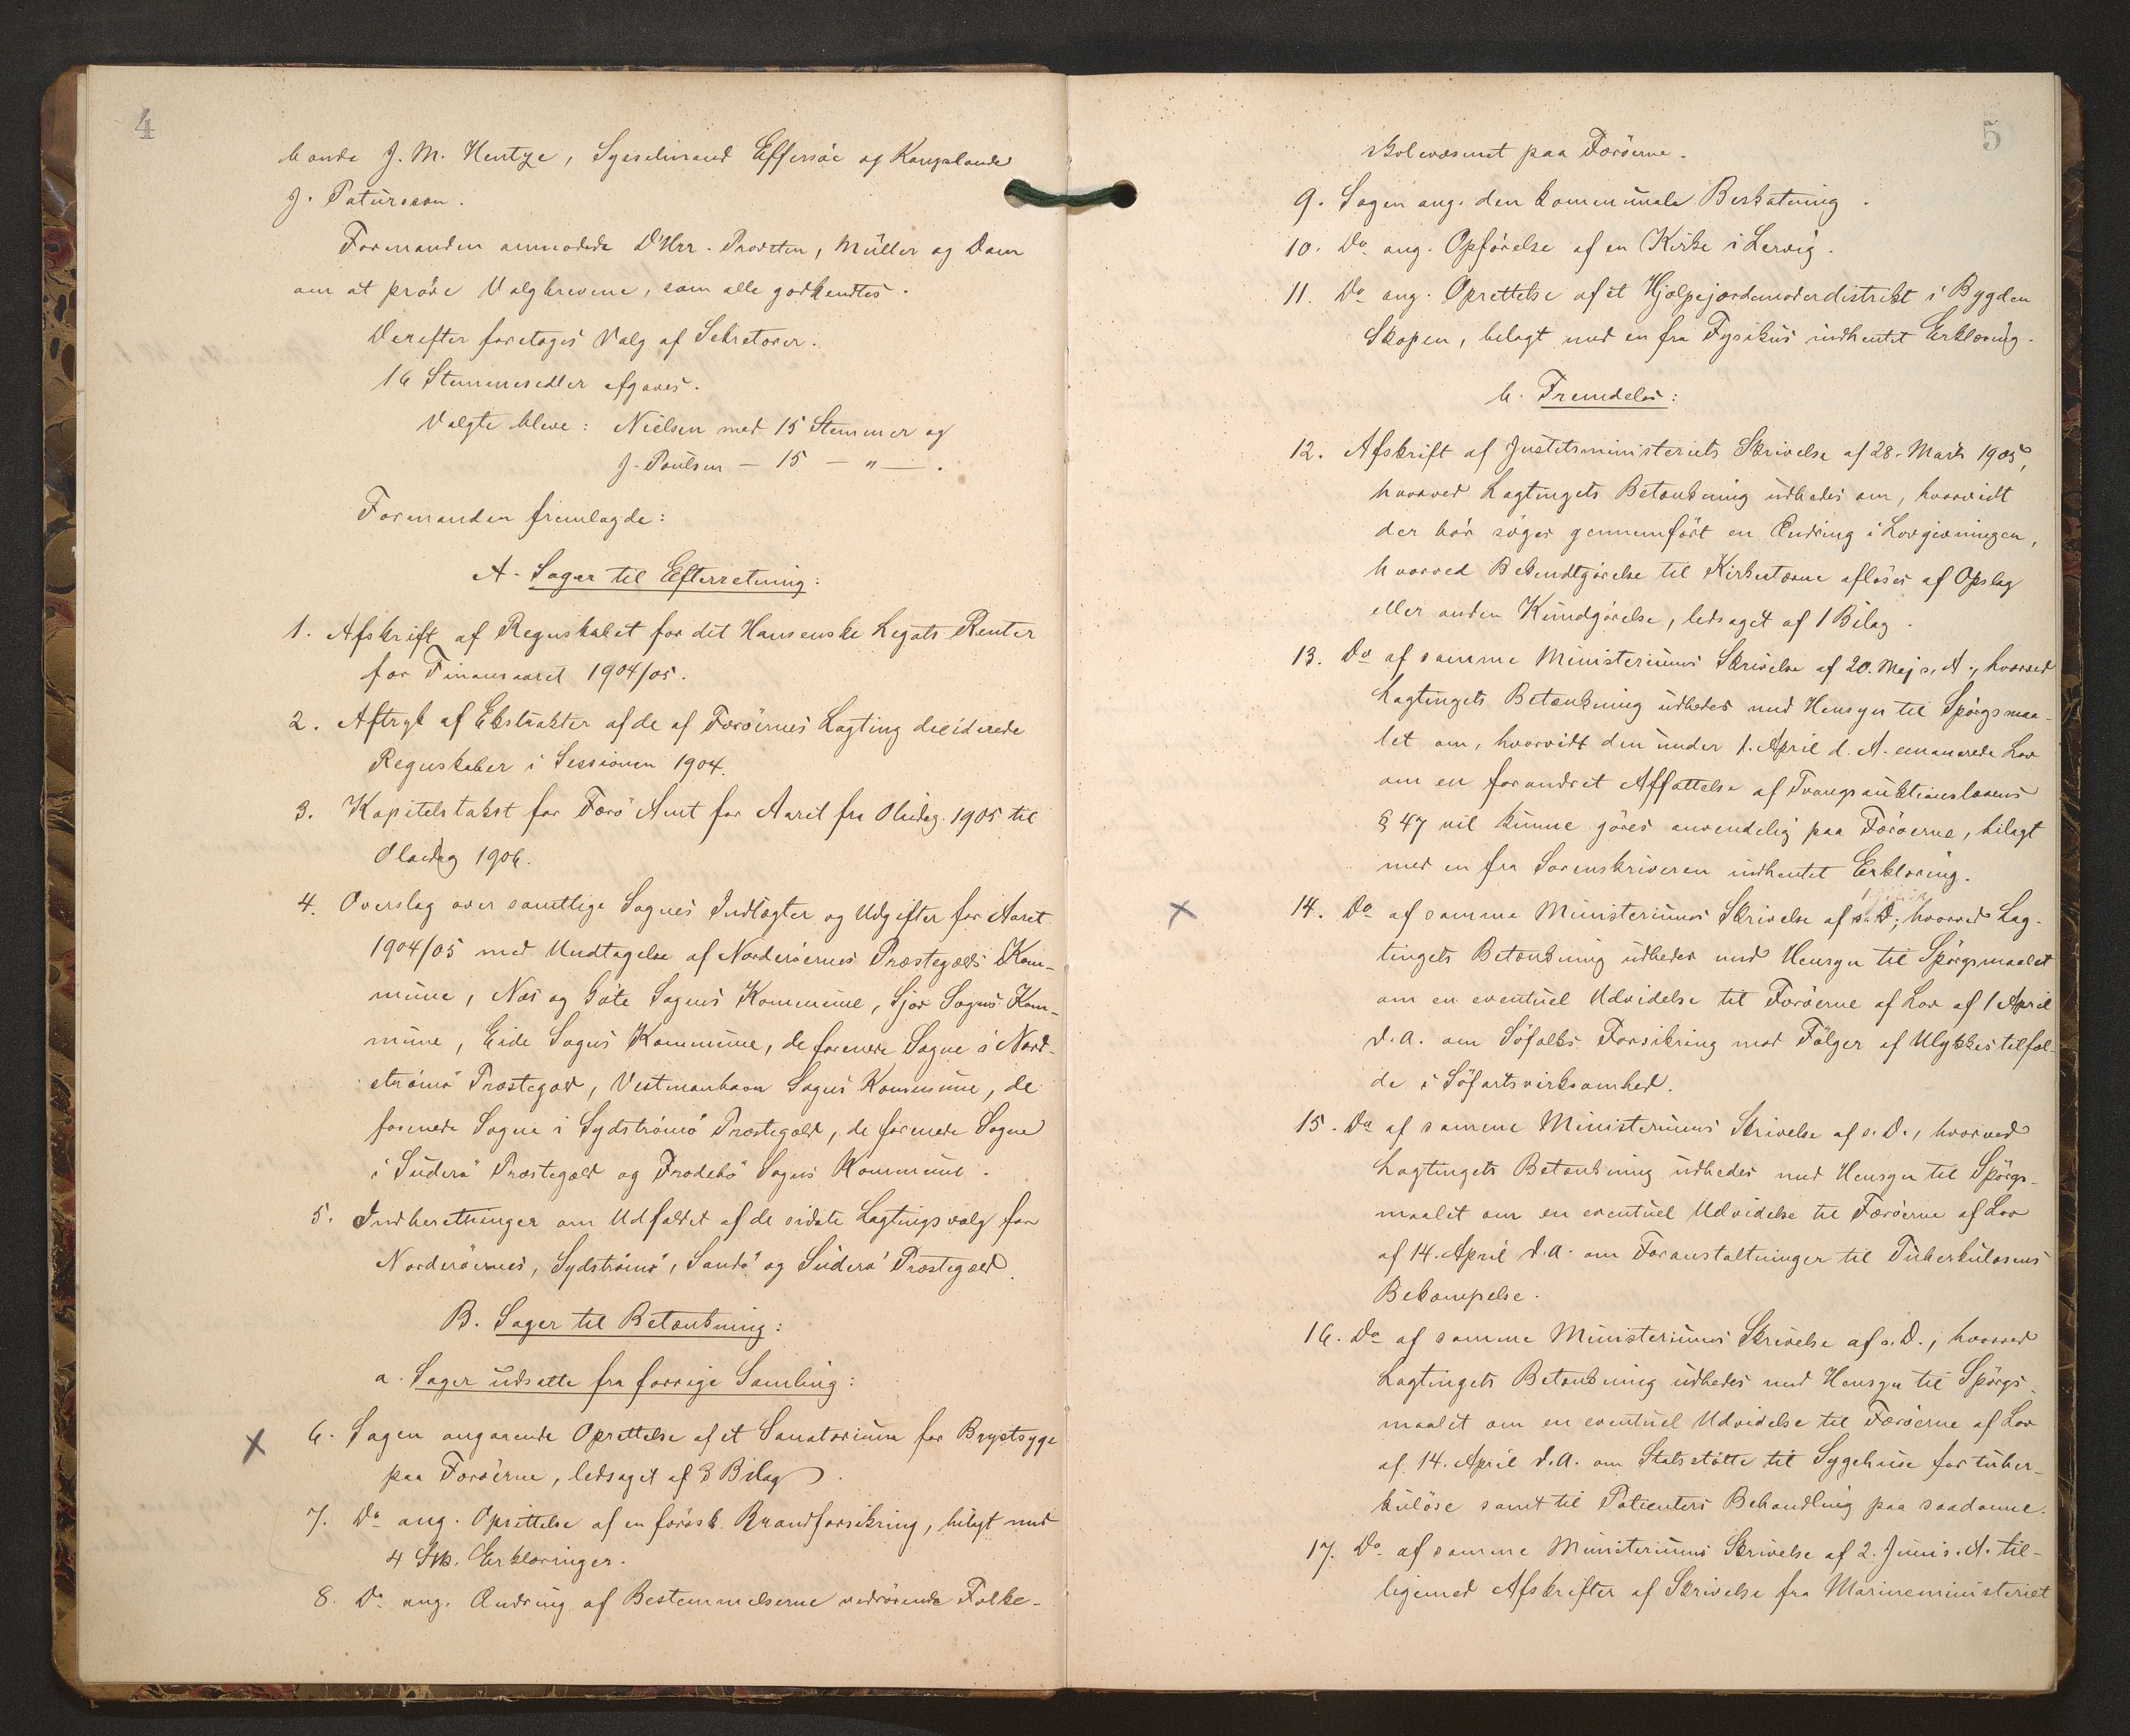 4
bonde J. M. Hentze, Sysselmand Effersøe og Kongsbonde
J. Patursson.
Formanden anmodede D'Hrr. Provsten, Müller og Dam
om at prøve Valgbrevene, som alle godkendtes.
Derefter foretoges Valg af Sekretærer.
16 Stemmesedler afgaves.
Valgte bleve: Nielsen med 15 Stemmer og
J. Poulsen — 15 — " — .
Formanden fremlagde:
A. Sager til Efterretning:
1. Afskrift af Regnskabet for det Hansenske Legats Renter
for Finansaaret 1904/05.
2. Aftryk af Ekstrakter af de af Færøernes Lagting deciderede
Regnskaber i Sessionen 1904.
3. Kapitelstakst for Færø Amt for Aaret fra Olaidag 1905 til
Olaidag 1906.
4. Overslag over samtlige Sognes Indtægter og Udgifter for Aaret
1904/05 med Undtagelse af Norderøernes Præstegælds Kom-
mune, Næs og Gøte Sognes Kommune, Sjov Sogns Kom-
mune, Eide Sogns Kommune, de forenede Sogne i Nord-
strømø Præstegæld, Vestmanhavn Sogns Kommune, de
forenede Sogne i Sydstrømø Præstegæld, de forenede Sogne
i Suderø Præstegæld og Frodebø Sogns Kommune.
5. Indberetninger om Udfaldet af de sidste Lagtingsvalg for
Norderøernes, Sydstrømø, Sandø og Suderø Præstegæld.
B. Sager til Betænkning:
a. Sager udsatte fra forrige Samling:
6. Sagen angaaende Oprettelse af et Sanatorium for Brystsyge
paa Færøerne, ledsaget af 3 Bilag.
7. Do ang. Oprettelse af en færøsk Brandforsikring, bilagt med
4 Stk. Erklæringer.
8. Do ang. Ændring af Bestemmelserne vedrørende Folke-
5
skolevæsenet paa Færøerne.
9. Sagen ang. den kommunale Beskatning.
10. Do ang. Opførelse af en Kirke i Lervig.
11. Do ang. Oprettelse af et Hjælpejordemoderdistrikt i Bygden
Skopen, bilagt med en fra Fysikus indhentet Erklæring.
b. Fremdeles:
12. Afskrift af Justitsministeriets Skrivelse af 28. Marts 1905,
hvorved Lagtingets Betænkning udbedes om, hvorvidt
der bør søges gennemført en Ændring i Lovgivningen,
hvorved Bekendtgørelse til Kirkestævne afløses af Opslag
eller anden Kundgørelse, ledsaget af 1 Bilag.
13. Do af samme Ministeriums Skrivelse af 20. Maj s. A., hvorved
Lagtingets Betænkning udbedes med Hensyn til Spørgsmaa-
let om, hvorvidt den under 1. April d. A. emanerede Lov
om en forandret Affattelse af Tvangsauktionslovens
§ 47 vil kunne gøres anvendelig paa Færøerne, bilagt
med en fra Sorenskriveren indhentet Erklæring.
14. Do af samme Ministeriums Skrivelse af s. D., hvorved Lag-
tingets Betænkning udbedes med Hensyn til Spørgsmaalet
om en eventuel Udvidelse til Færøerne af Lov af 1 April
d. A. om Søfolks Forsikring mod Følger af Ulykkestilfæl-
de i Søfartsvirksomhed.
15. Do af samme Ministeriums Skrivelse af s. D., hvorved
Lagtingets Betænkning udbedes med Hensyn til Spørgs-
maalet om en eventuel Udvidelse til Færøerne af Lov
af 14. April d. A. om Foranstaltninger til Tuberkulosens
Bekæmpelse.
16. Do af samme Ministeriums Skrivelse af s. D., hvorved
Lagtingets Betænkning udbedes med Hensyn til Spørgs-
maalet om en eventuel Udvidelse til Færøerne af Lov
af 14. April d. A. om Statsstøtte til Sygehuse for tuber-
kuløse samt til Patienters Behandling paa saadanne.
17. Do af samme Ministeriums Skrivelse af 2. Juni s. A. til-
ligemed Afskrifter af Skrivelse fra Marineministeriet